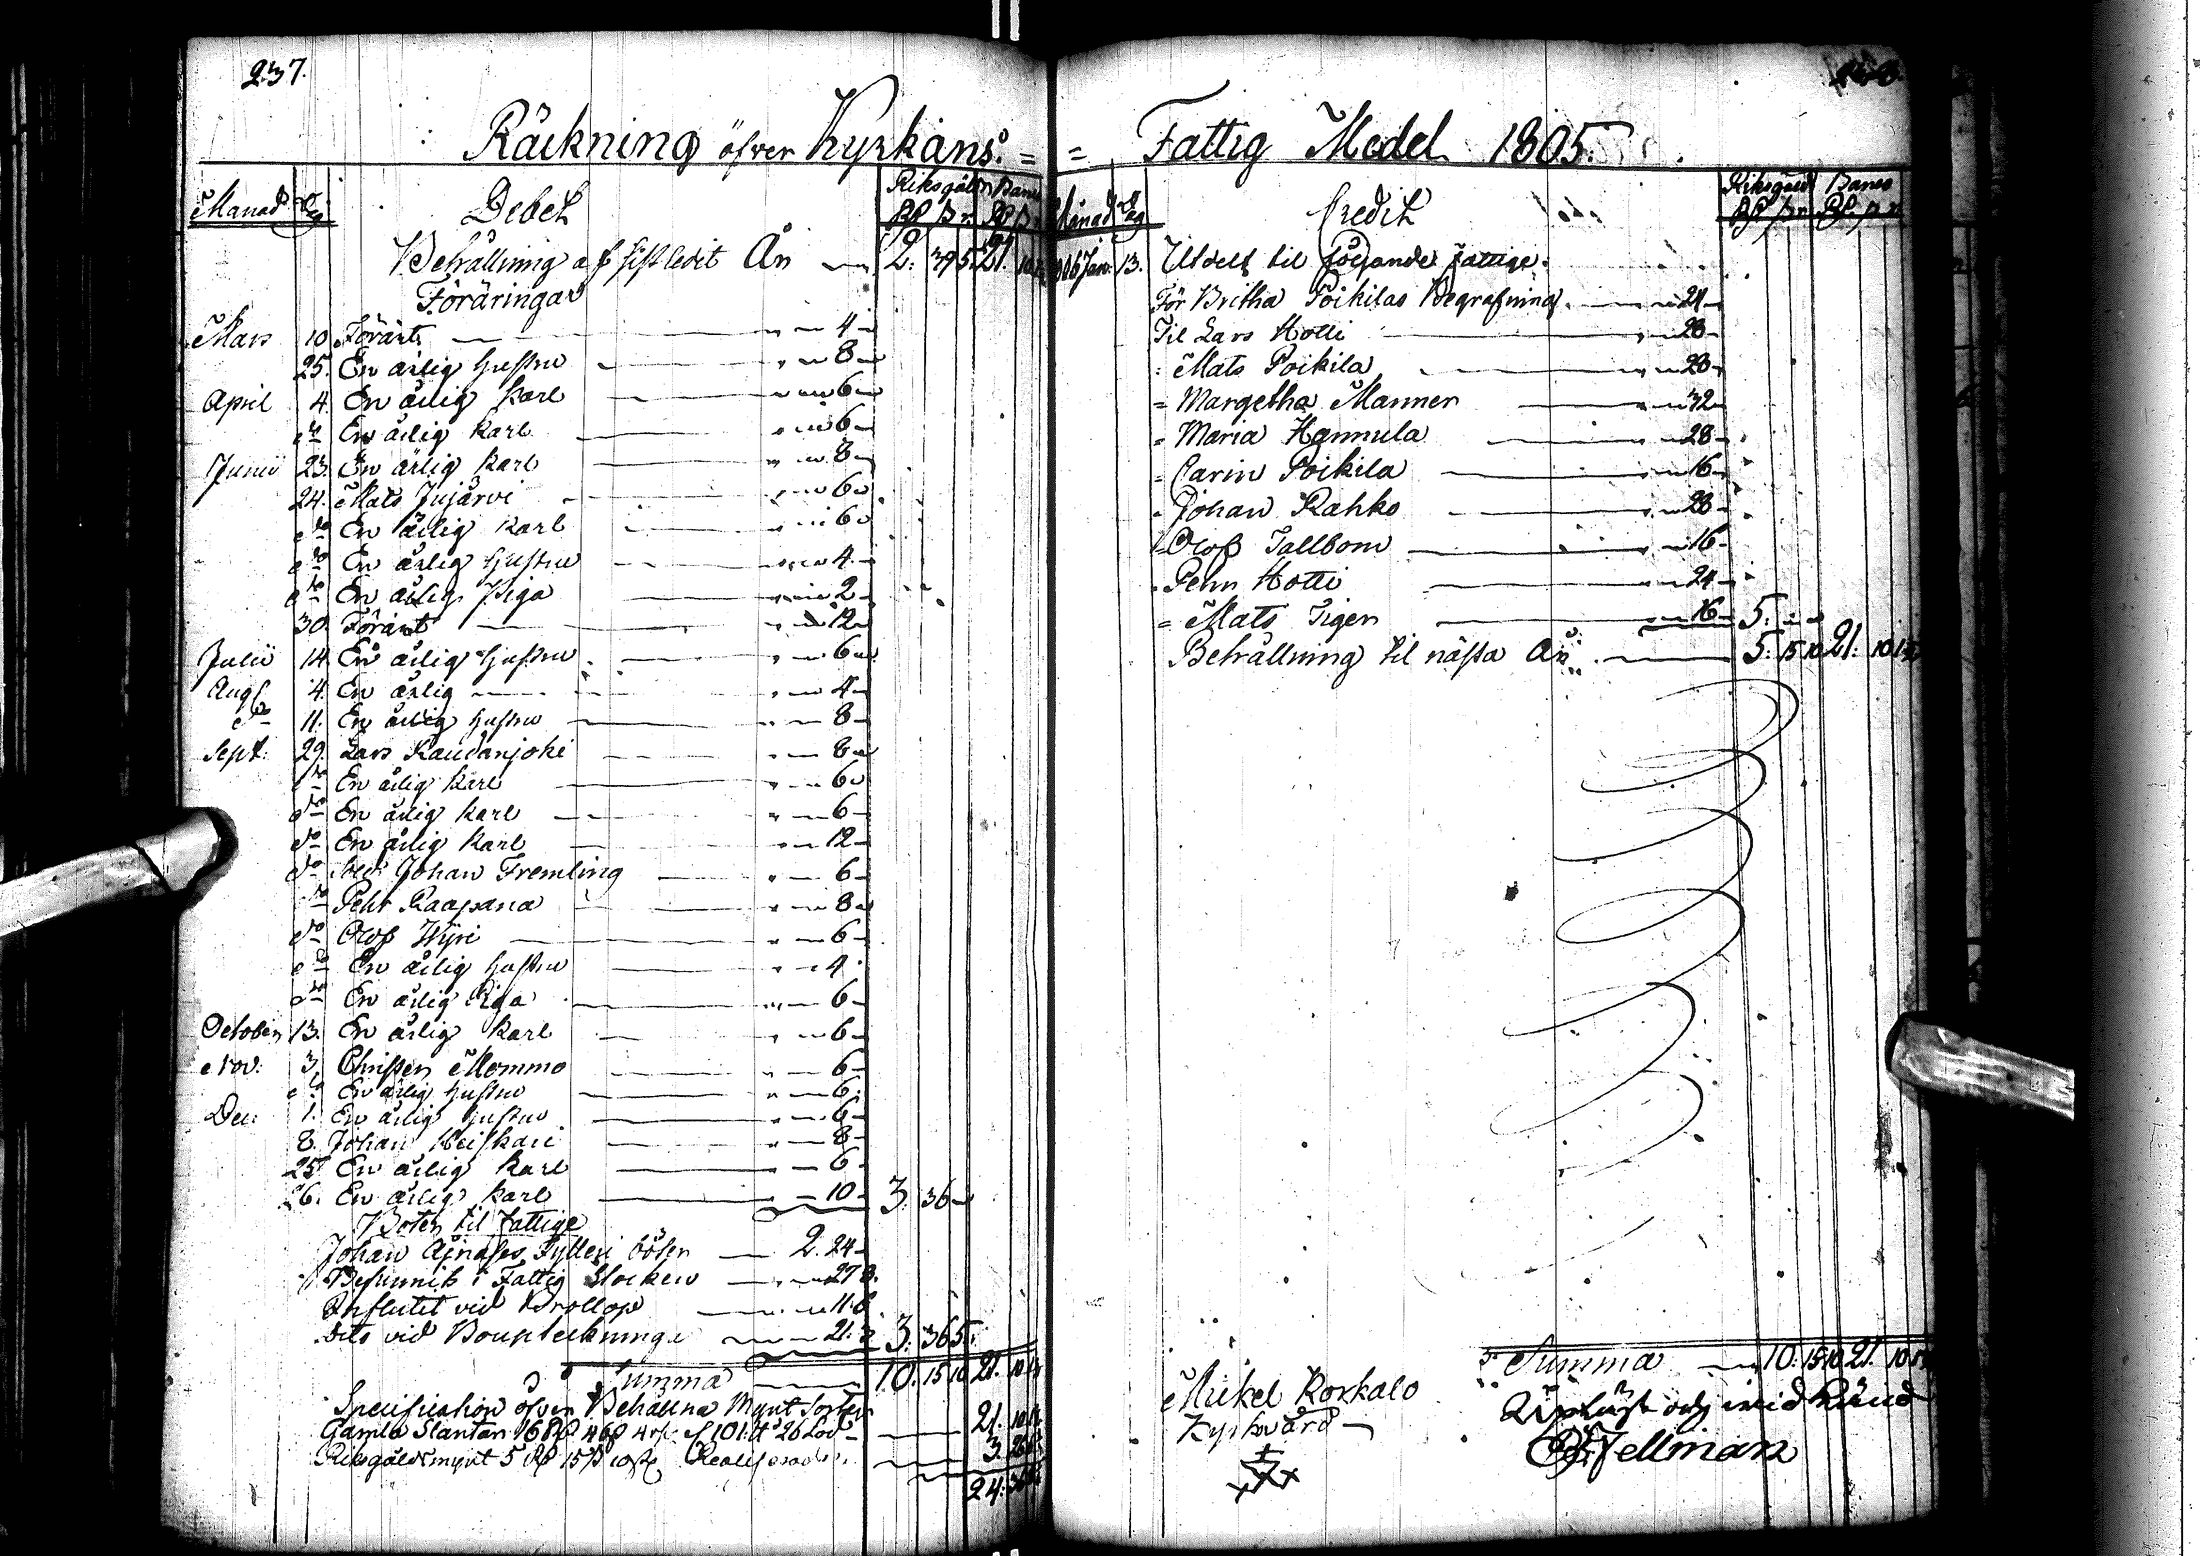 237.
Räckning öfver Kyrkans =
Manad Dag Debet Riksgäld Banco
Rd ß r Rd ß r
Behållning af sistledit År 2. 39 5 21. 10
Föräringar
Mars 10 Förärt 4
25. En ärlig hustru 8
April 4 En ärlig karl 6
do En ärlig karl 6
Junii 23. En ärlig karl 8
24. Mats Jujärvi 6
do En ärlig karl 6
do En ärlig hustru 4
do En ärlig piga 2
30. Förärt 12
Julii 14. En ärlig hustru 6
Aug 4. En ärlig 4
do 11. En ärlig hustru 8
Sept. 29. Lars Raudanjoki 8
do En ärlig karl 6
do En ärlig karl 6
do En ärlig karl 12
do Johan Fremling 6
do Pehr Raapana 8
do Olof Wyri 6
do En ärlig hustru 4
do En ärlig Piga 6
October 13. En ärlig karl 6
Nov: 3. Christer Mommo 6
do En ärlig hustru 6
Dec: 1. En ärlig hustru 6
8. Johan Heiskari 8
25 En ärlig karl 6
26. En ärlig karl 10 3. 36
Böter til fattige
Johan Fylleri böter 2. 24
Befunnit i Fattig Stocken 27 8.
Influtit vid Bröllop 11. 8
dito vid Boupteckningar 21. 3. 36 5.
Summa 10. 15 10 21. 10
Specification öfver Behållna Mynt Sorter
Gamla Slantar 16 Rd 46 ß 4 r 101 26 Lod 21. 10
Riksgäldsmynt 5 Rd 15 ß 10 r 3. 26
24. 36
= Fattig Medel 1805.
Månad Dag Credit Riksgäld Banco
Rd ß r Rd ß r
1806 Jan: 13. Utdelt til följande fattige.
För Britha Poikilas Begrafning 24
Til Lars Hotti 28
= Mats Poikila 28
= Margetha Manner 32
= Maria Hannula 28
= Carin Poikila 16
= Johan Rahko 28
= Olof Tallbom 16
= Pehr Hotti 24
= Mats Tiger 16 5.
Behållning til nästa År 5. 15 10 21. 10
Summa 10. 15 10 21. 10
Mickel Korkalo
Kyrkovärd
Fellman